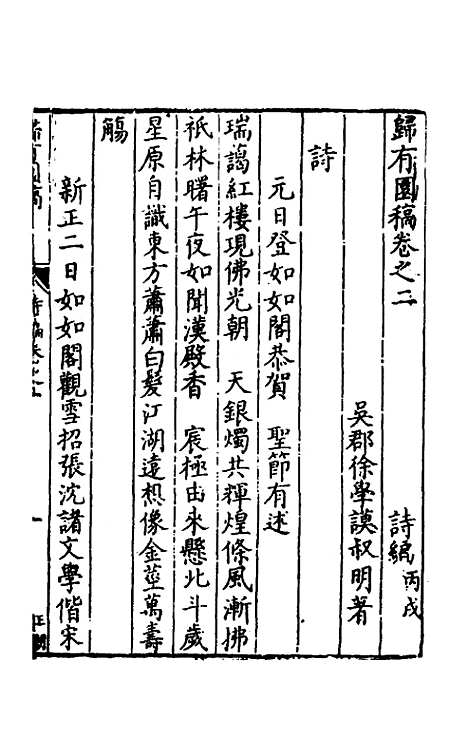 歸有園稿卷之二　詩編丙戌
吳郡徐學謨叔明著
詩
元日登如如閣恭賀　聖節有述
瑞藹紅樓現佛光朝　天銀燭共輝煌條風漸拂
祇林曙午夜如聞漢殿香　宸極由來懸北斗歲
星原自識東方蕭蕭白髮江湖遠想像金莖萬壽
觴
新正二日如如閣觀雪招張沈諸文學偕宋
歸有園稿
詩編卷之二
一